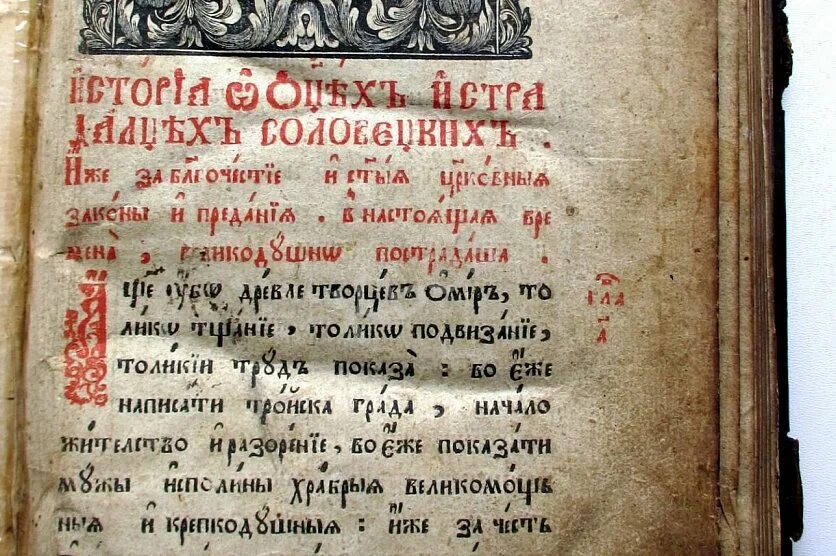 И҆сто́рїѧ ѡ҆ Ѻ҆ц҃ѣхъ и҆ стра
далцѣхъ соловецкихъ .
И҆же за бл҃гоче́стїе и҆ ст҃ы́ѧ цр҃ко́вныѧ
зако́ны и҆ преда́нїѧ . в настоѧ́щаѧ вре
мена̀ , великодꙋ́шнѡ пострада́ша .
Аще ᲂу҆́бѡ дре́вле творцевъ Ѻ҆ми́ръ , то
ли́кѡ тща́нїе , толи́кѡ подвиза́нїе ,
толи́кїи трꙋ́дъ показа̀ : во є҆́же
написа́ти тро́йска гра́да , нача́ло
жи́телство и҆ разоре́нїе , во є҆́же показа́ти
мꙋ́жы и҆споли́ны хра́брыѧ великомо́щъ
ныѧ и҆ крепкодꙋ́шныѧ : и҆̀же за че́сть
а҃